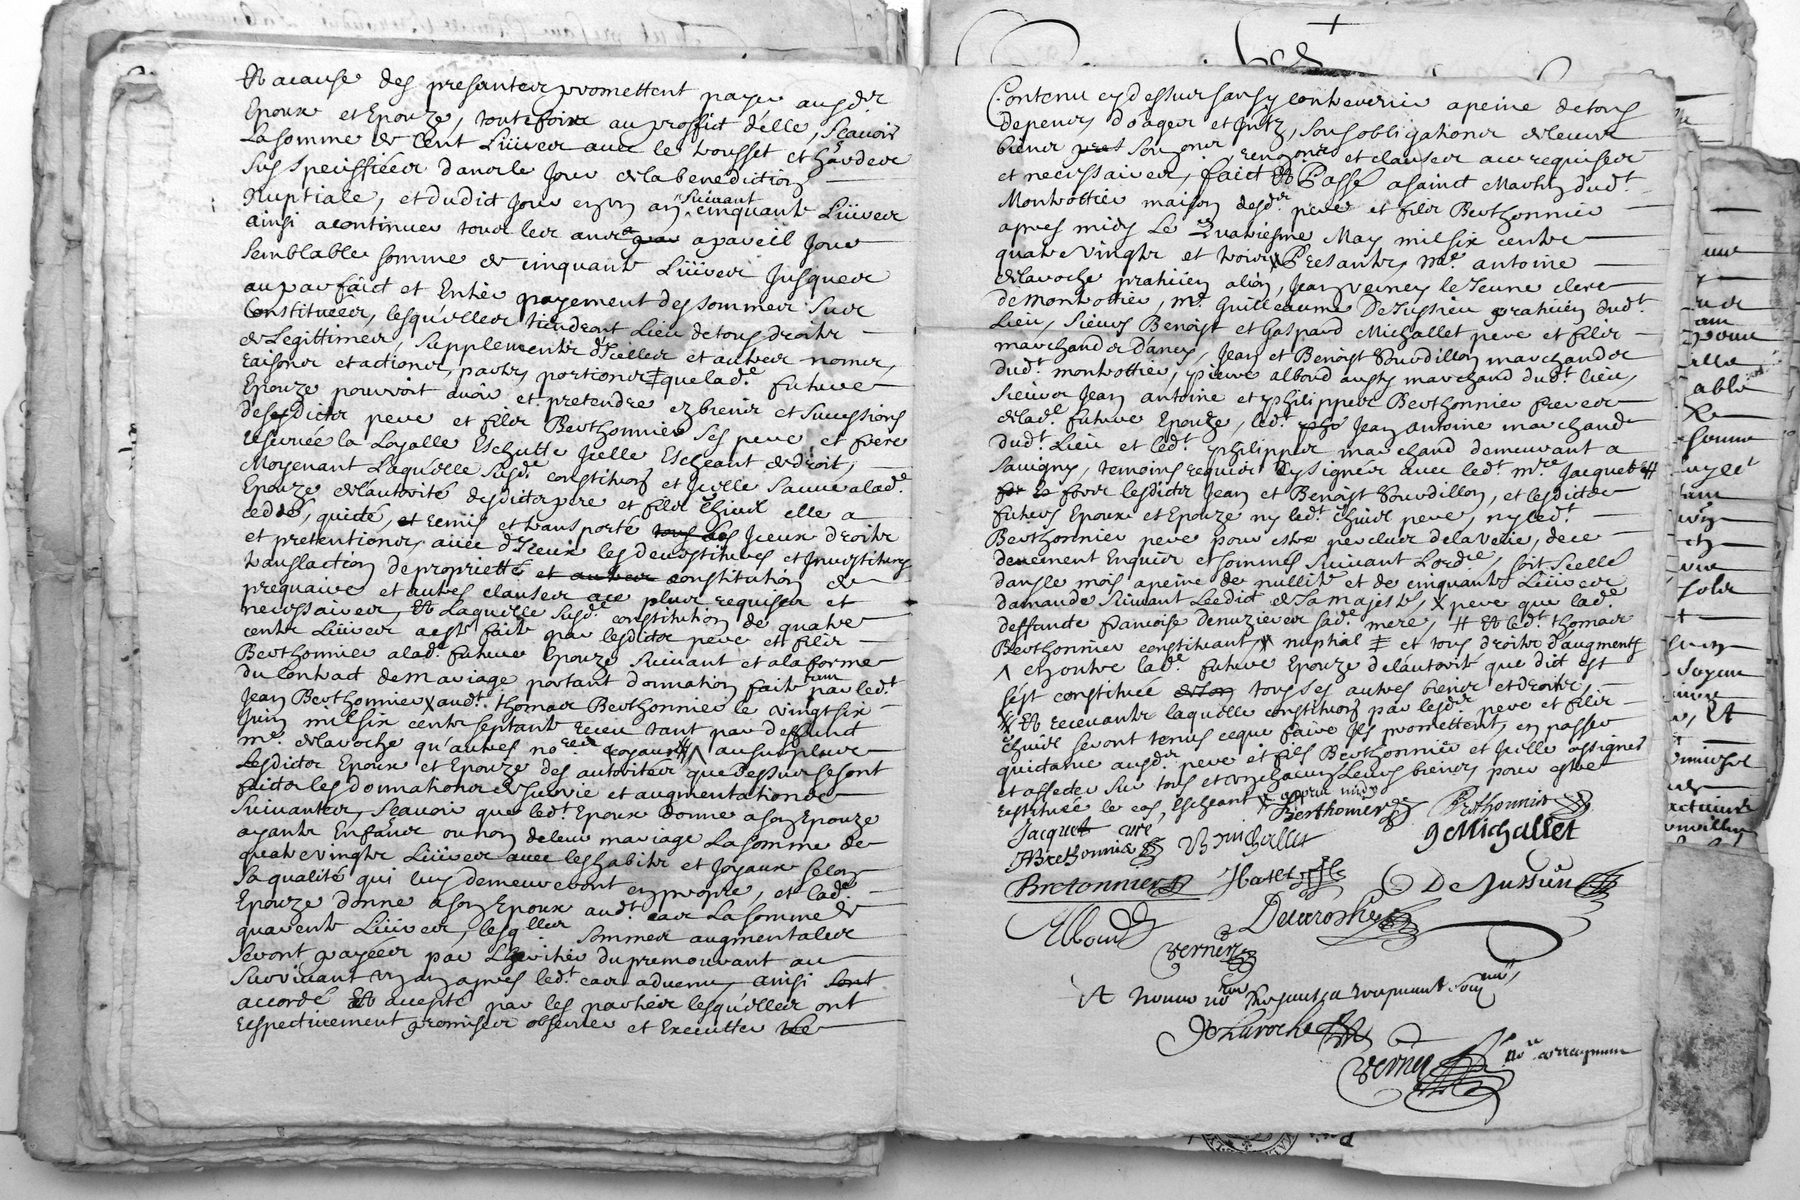 Et acause des presentes promettent payer ausd.
Epoux et Epouze, toutefoix au proffict d'elle, Scavoir
La somme de Cent Liivres avec le trousset et hardes
Sus Speciffiées dans le Jour de la benediction
Nuptiale, et dudict Jour en un an suivant cinquante Liivres
ainsi acontinuer tous les ans a pareil Jour
Semblable somme de cinquante Liivres Jusques
au parfaict et Entier payement des sommes sus
Constituées, lesquelles tiendront Lieu de tous droitz
de Legittimes, Supplementz d'Icelles et autres noms,
raisons et actions, partz, portions que lad.e future
Epouze pouvoit avoir et pretendre ez biens et Successions
desdictz pere et filz Berthonnier Ses pere et frere
reservée la Loyalle Eschutte Icelle Escheant de droit,
Moyenant Laquelle susd.e constituon et Icelle Sauve a lad.e
Epouze de l'autorité desdictz pere et filz elle a
ceddé, quitté, remis et transporté Iceux droitz
et pretentions avec d'Iceux les devestitures et Investitures
translaction de proprietté constitution de
prequaire et autres clauses plus requises et
necessaires, Et Laquelle Susd.e constitution de quatre
centz Liivres a estée faite par lesdictz pere et filz
Berthonnier a lad.e future Epouze Suivant et a la forme
du Contract de Mariage portant donnation faite par led.t
Jean Berthonnier aud.t thomas Berthonnier le vingt six
Juin mil six centz septante receu tant par deffunct
m.e delaroche qu'autres no.res royaux au surplus
Lesdictz Epoux et Epouze des autorités que dessus se sont
faictz les donnations de Survie et augmentations
Suivantes, Scavoir que led.t Epoux donne a son Epouze
ayantz Enfans ou non de leur mariage La somme de
quatrevingtz Liivres avec les habitz et Joyaux selon
Sa qualité qui luy demeureront en propre, et lad.e
Epouze donne a son Epoux aud.t cas La somme de
quarente Liivres, lesq.lles sommes augmentales
Seront payées par L'heritier du premourant au
Survivant un an apres led.t cas advenu, ainsi
accordé Et accepté par les parties lesquelles ont
respectivement promises observer et Executter le
Contenu cy dessus sans y contrevenir a peine de tous
depens, domages et Intz, sous obligations de leurs
biens et clauses a ce requises
et necessaires, faict Et Passé a sainct Martin dud.t
Montrottier maison desd. pere et filz Berthonnier
apres midy Le Quatriesme May mil six centz
quatrevingtz et trois Presantz M.e antoine
delaroche praticien alion, Jean verney le Jeune clerc
de Montrottier, m.e Guilleaume De Jussieu praticien dud.t
Lieu, Sieurs Benoist et Gaspard Michallet pere et filz
marchandz d'ancy, Jean et Benoist Sourdillon marchandz
dud.t montrottier, pierre albond aussy marchand dud.t lieu,
Sieurs Jean antoine et philippes Berthonnier freres
de lad.e future Epouze, led.t Jean antoine marchand
dud.t Lieu et led.t philippes marchand demeurant a
Savigny, temoins requis Et signés avec led.t m.re Jacquet
fors lesdictz Jean et Benoist Sourdillon, et lesdictz
futurs Epoux et Epouze ny led.t pere, ny led.t
Berthonnier pere pour estre perclus de la veüe, de ce
deuement Enquis et sommés Suivant Lord.ce, soit Scellé
dans le mois a peine de nullité et de cinquante Liivres
damande suivant Ledict de Sa Majesté, pere que lad.e
deffunte francoise denuzieres sad.e mere, Et led.t thomas
Berthonnier constituant, nuptial et tous droitz d'augmentz
et en outre lad.e future Epouze de l'autorité que dict est
s'est constituée tous ses autres biens et droitz,
Et recevantz laquelle constituon par lesd. pere et filz
seront tenus ce que faire Ils promettent, en passer
quictance ausd. pere et fils Berthonnier et Icelle assigner
et affecter Sur tous et un chacuns Leurs biens, pour estre
restituée le cas, Escheant
Berthonnier Berthonnier
Jacquet
JBrethonnier gMichallet
Bretonnier De Jussieu
Albond Delaroche
verney
Delaroche
verney